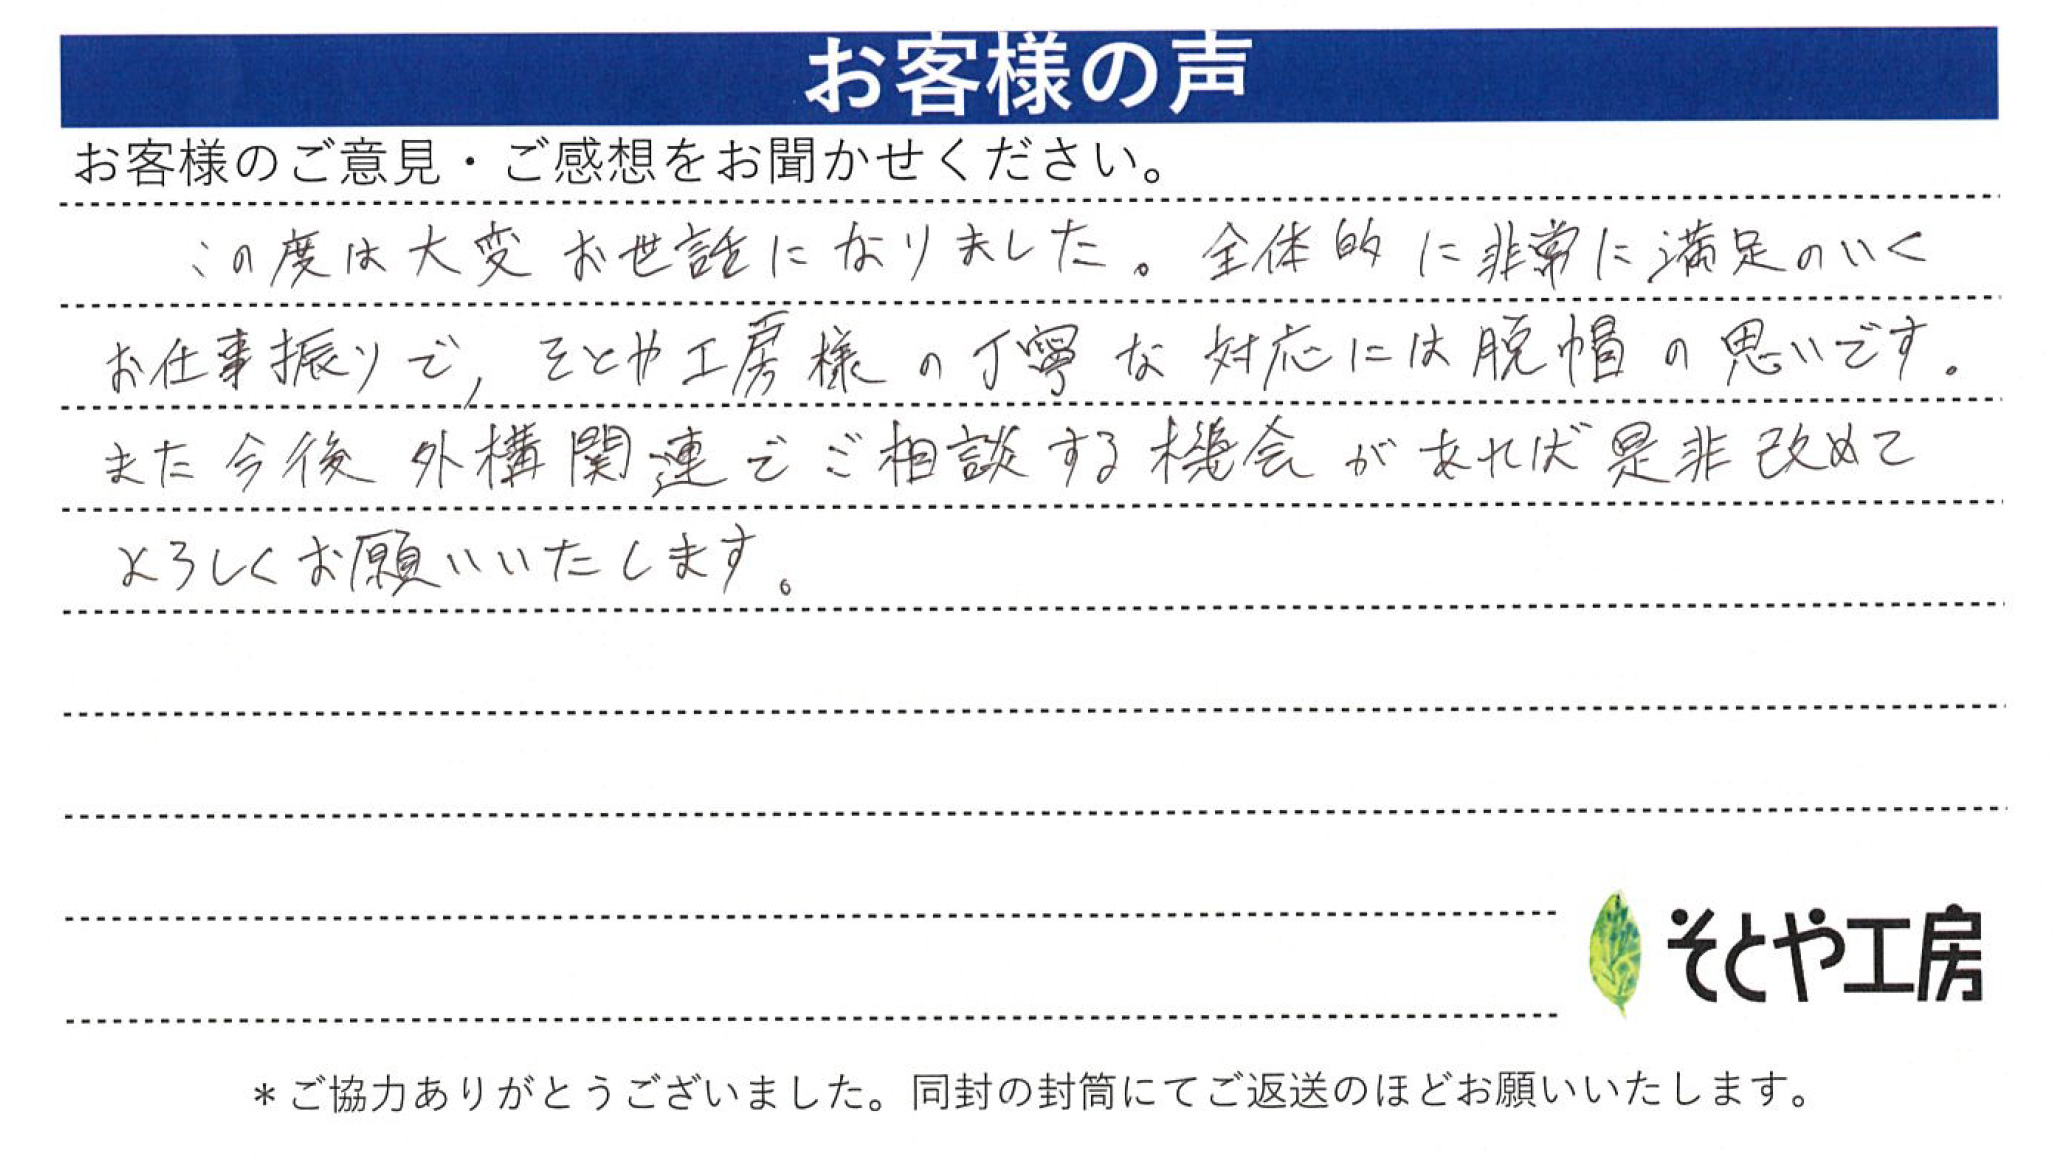 お客様の声
お客様のご意見・ご感想をお聞かせください。
この度は大変お世話になりました。全体的に非常に満足のいく
お仕事振りで、そとや工房様の丁寧な対応には脱帽の思いです。
また今後外構関連でご相談する機会があれば是非改めて
よろしくお願いいたします。
そとや工房
＊ご協力ありがとうございました。同封の封筒にてご返送のほどお願いいたします。